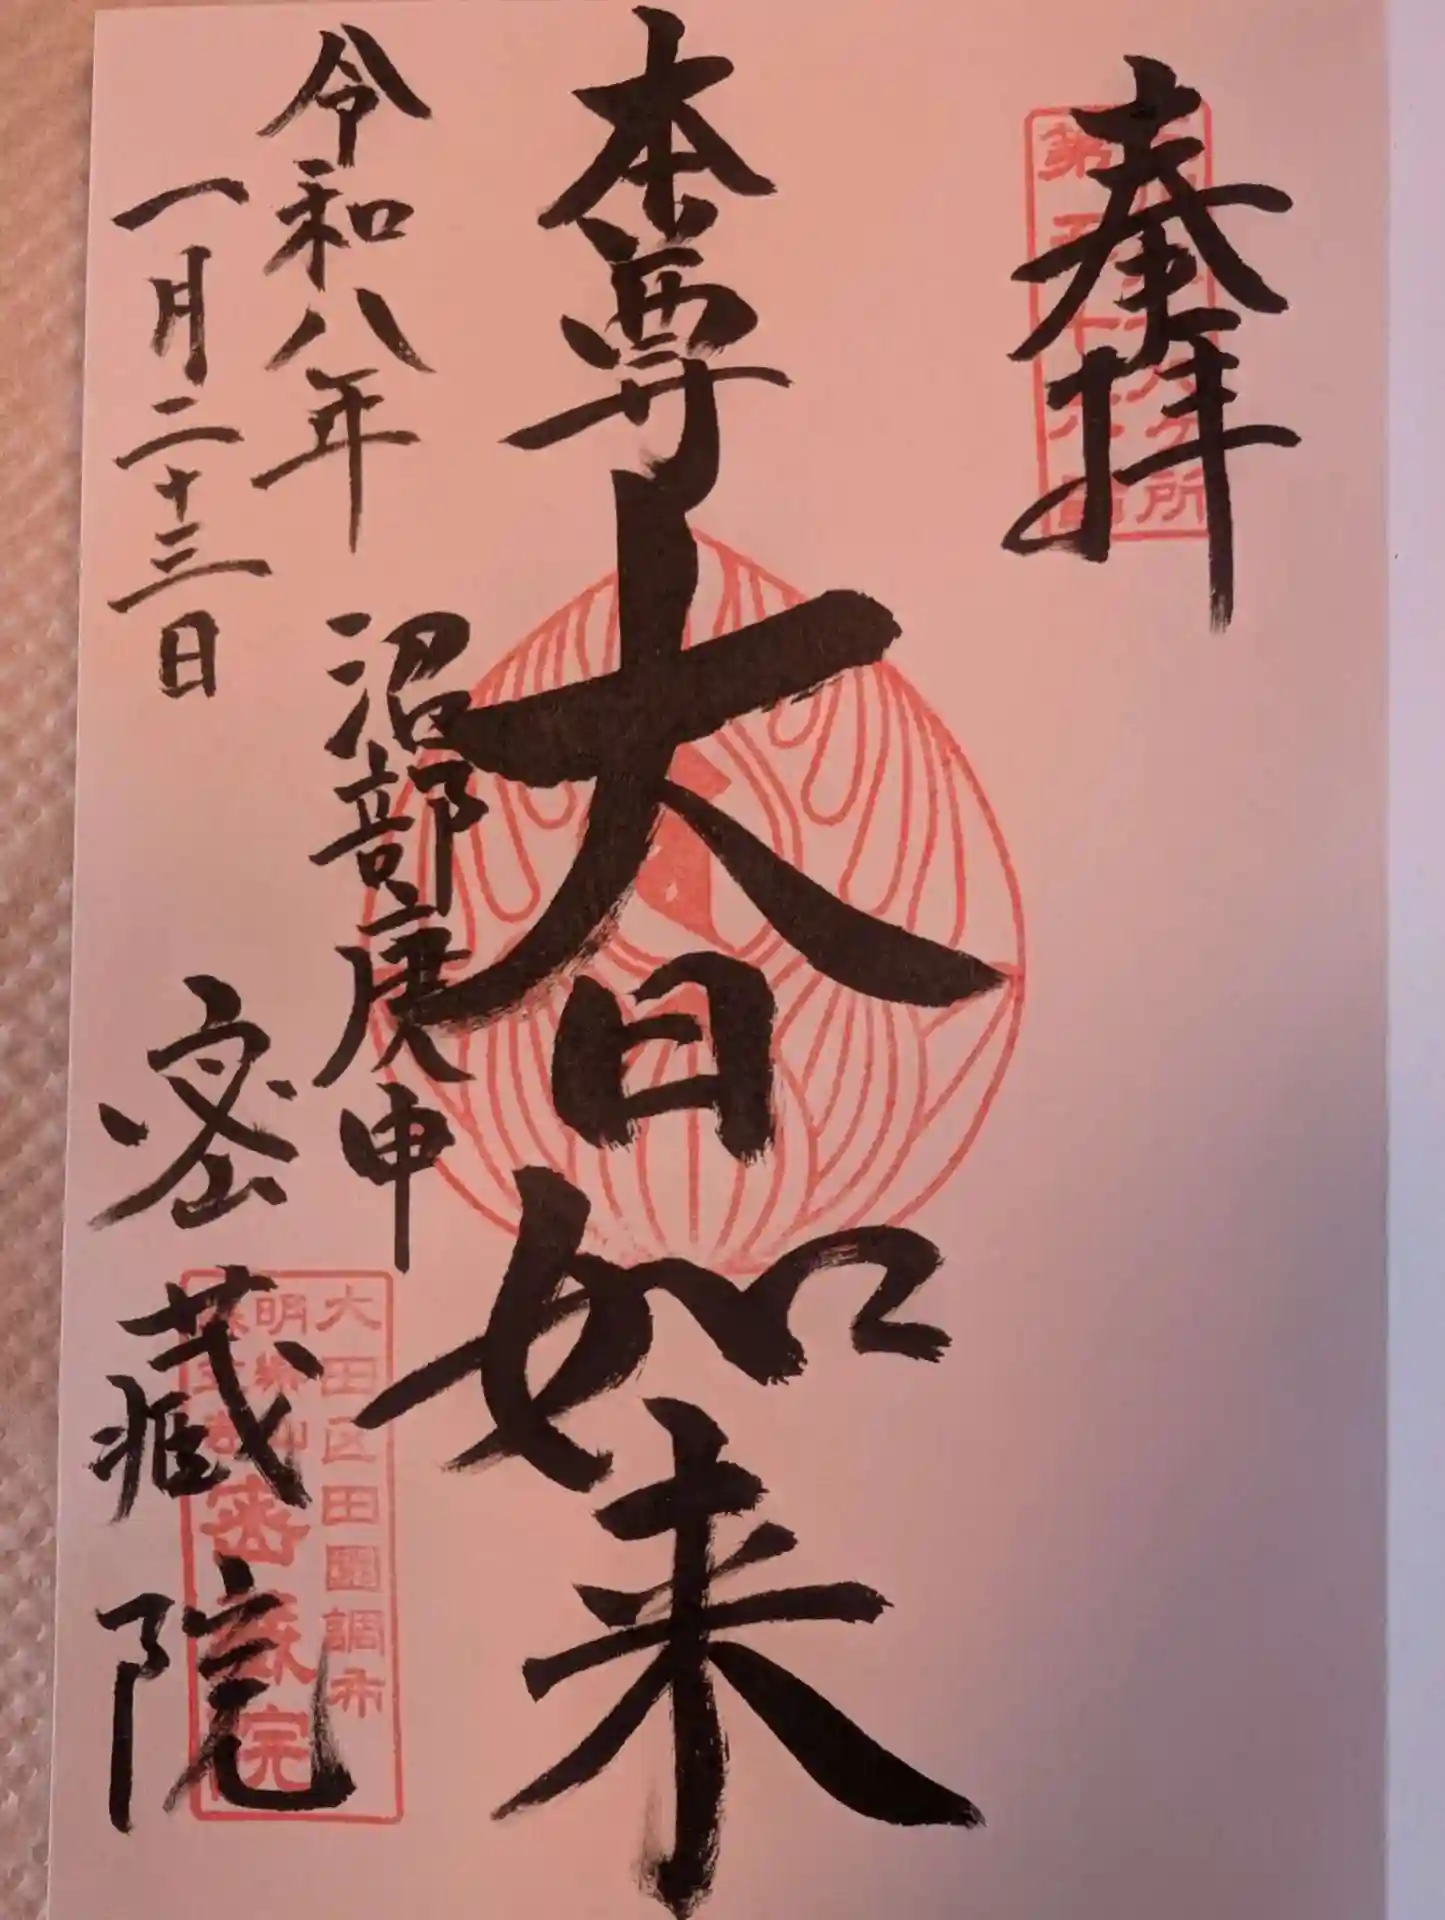 奉拝
本尊
大日如来
沼部庚申
令和八年
一月二十三日
密蔵院
大田区田園調布
密蔵院